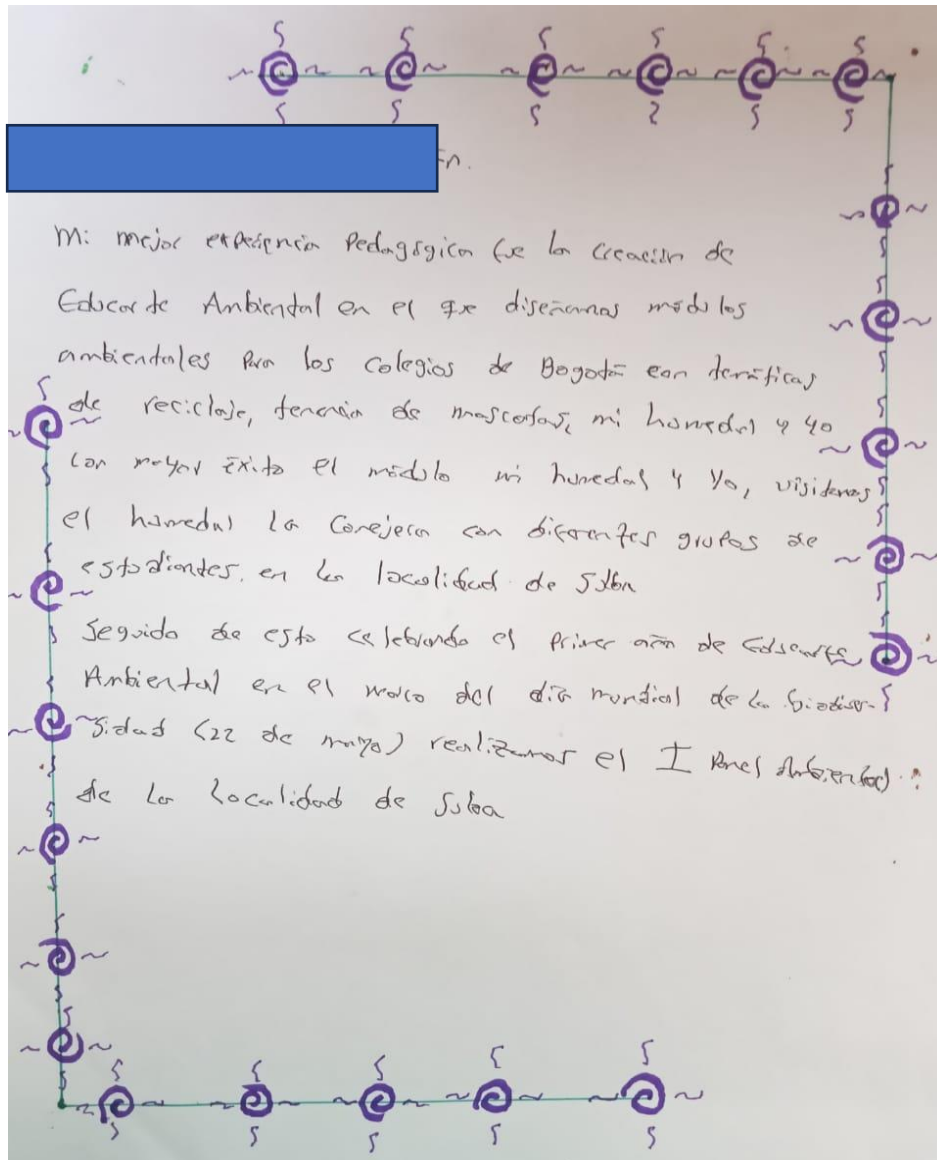 én.
Mi mejor experiencia Pedagógica fue la creación de
Educarte Ambiental en el que diseñamos módulos
ambientales para los colegios de Bogotá con temáticas
de reciclaje, tenencia de mascotas, mi humedal y yo
con mayor éxito el módulo mi humedal y yo, visitamos
el humedal la Conejera con diferentes grupos de
estudiantes. en la localidad de Suba
Seguido de esto celebrando el primer año de Educarte
Ambiental en el marco del día mundial de la biodiver-
sidad (22 de mayo) realizamos el I Panel Ambiental
de la localidad de Suba